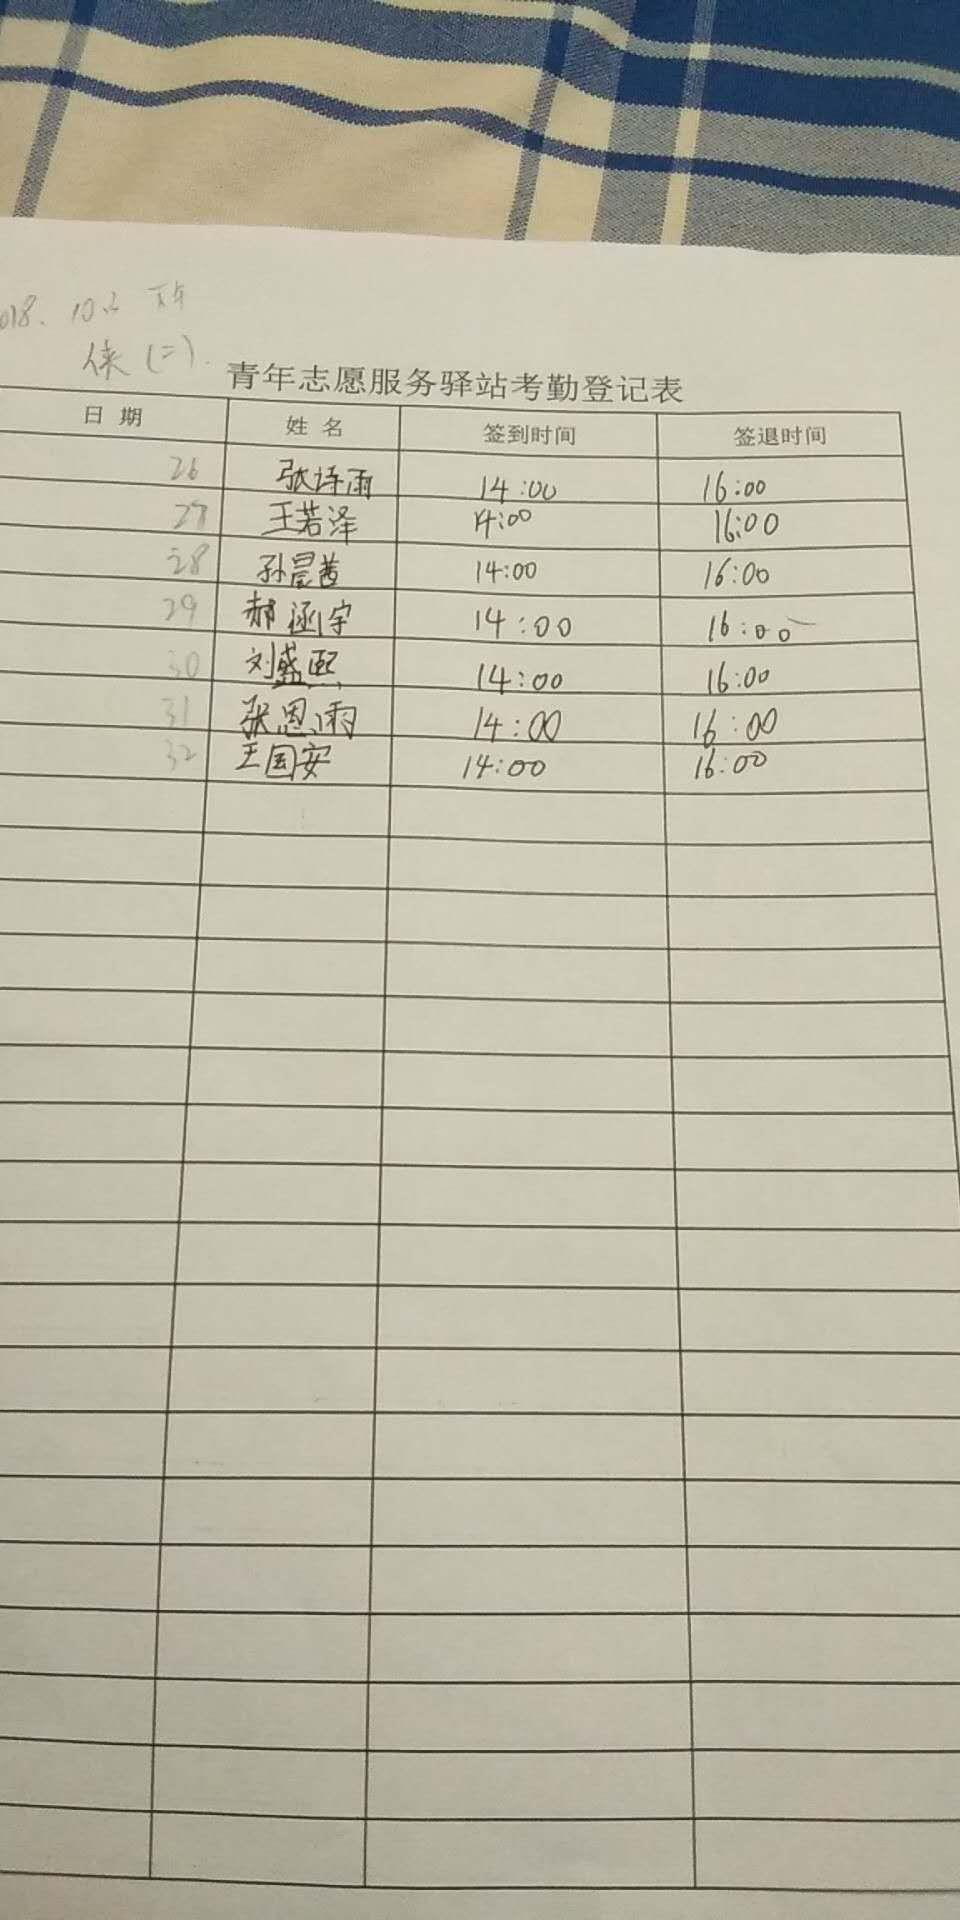 018. 10.2 下午
侠(二).
青年志愿服务驿站考勤登记表
日期 姓名 签到时间 签退时间
26 张诗雨 14:00 16:00
27 王若泽 14:00 16:00
28 孙晨茜 14:00 16:00
29 郝涵宇 14:00 16:00
30 刘盛熙 14:00 16:00
31 张恩雨 14:00 16:00
32 王国安 14:00 16:00